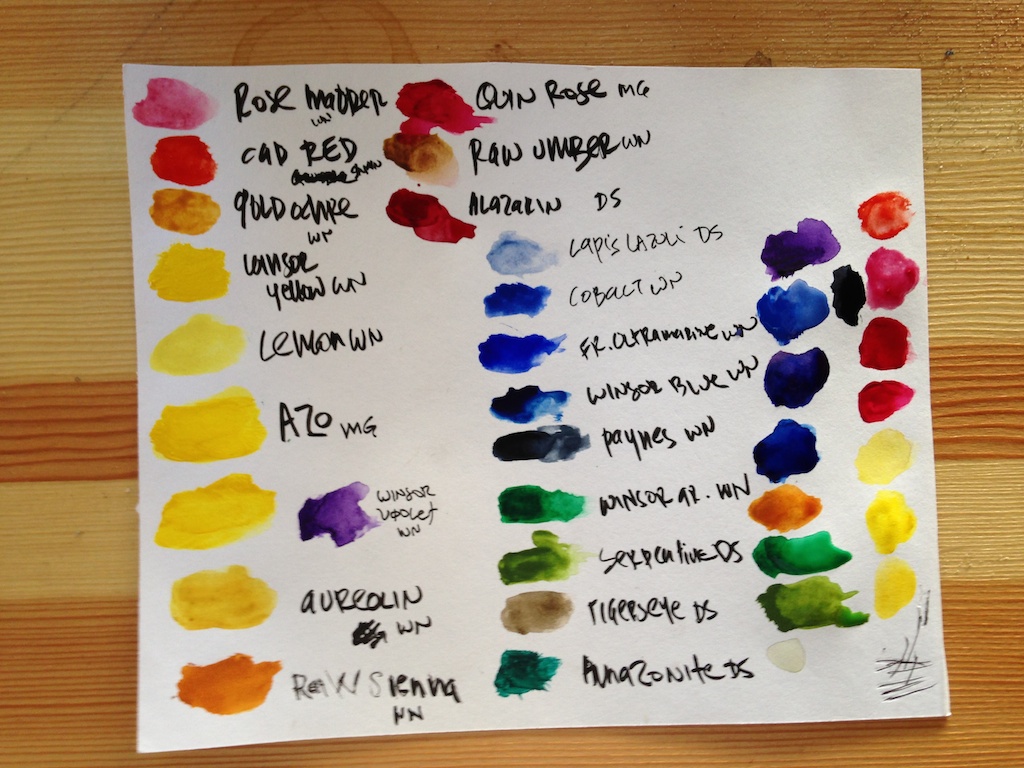 Rose Madder
WN
CAD RED
gold ochre
WN
Winsor
yellow WN
Lemon WN
AZO MG
WINSOR
VIOLET
WN
AUREOLIN
WN
RaW Sienna
WN
QUIN Rose MG
RAW UMBER WN
ALAZARIN DS
LAPIS LAZULI DS
COBALT WN
FR. ULTRAMARINE WN
WINSOR BLUE WN
PAYNES WN
WINSOR GR. WN
SERPENTINE DS
TIGERSEYE DS
AMAZONITE DS